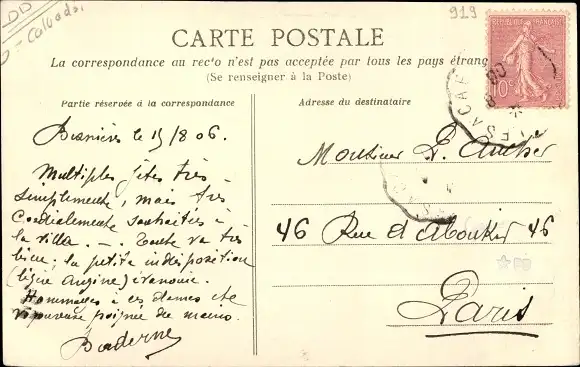 DD
Calvados
919
CARTE POSTALE
La correspondance au recto n'est pas acceptée par tous les pays étrang
(Se renseigner à la Poste)
REPUBLIQUE FRANÇAISE
10c
Partie réservée à la correspondance
Adresse du destinataire
le 15/8 06.
Multiples fêtes très
simplement, mais très
cordialement souhaitées à
la villa. — . Toute va très
bien. la petite indisposition
(légère angine) évanouie.
Hommages à ces dames et
vigoureuse poignée de mains.
Monsieur
46 Rue d'Aboukir 46
Paris